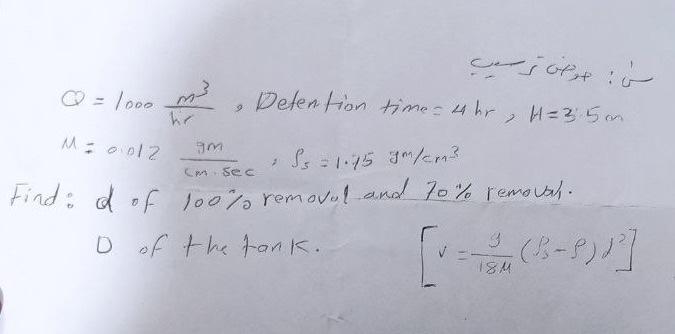 س: حوض ترسيب
Q = 1000 m³/hr , Detention time = 4 hr , H = 3.5 m
M = 0.012 gm/cm.sec , ρs = 1.15 gm/cm3
Find: d of 100% removal and 70% removal.
D of the tank. [v = g/18M (ρs - ρ) d²]